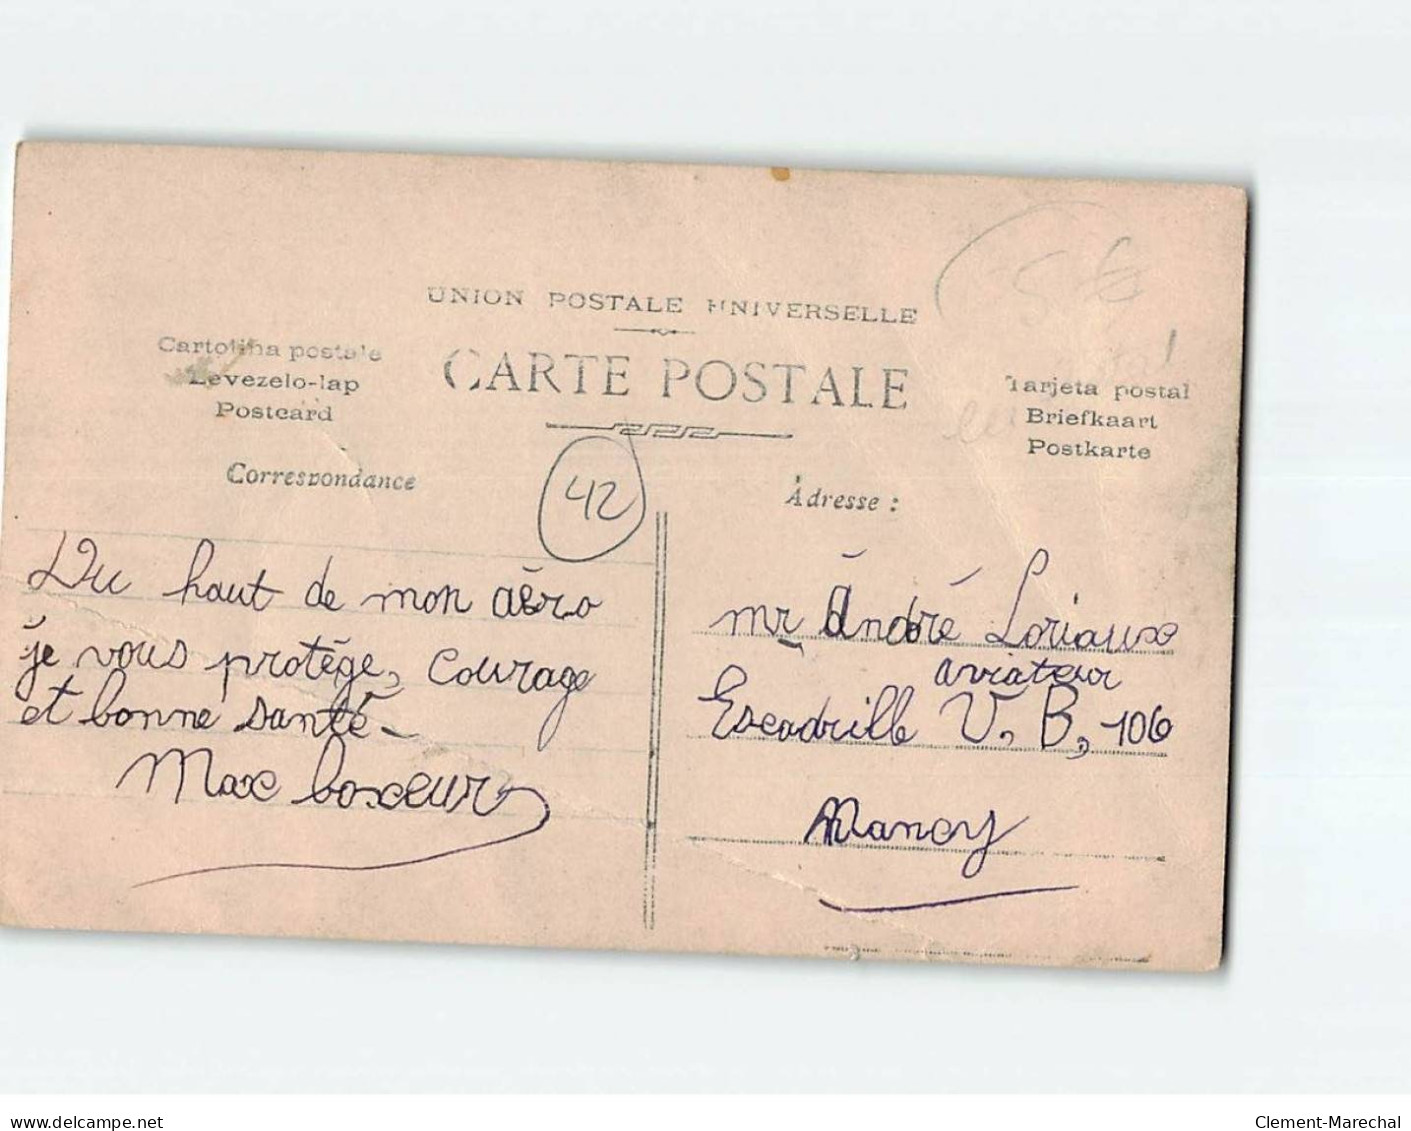 UNION POSTALE UNIVERSELLE
CARTE POSTALE
Cartolina postale
Levezelo-lap
Postcard
Tarjeta postal
Briefkaart
Postkarte
Correspondance
42
5 €
Adresse :
Du haut de mon aéro
je vous protège, courage
et bonne santé -
Max boxeur
mr André Loriaux
aviateur
Escadrille V. B, 106
Nancy
www.delcampe.net
Clement-Marechal